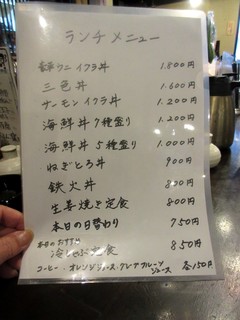 ランチメニュー
ウニイクラ丼 1.800円
三色丼 1.600円
サーモンイクラ丼 1.200円
海鮮丼7種盛り 1.200円
海鮮丼5種盛り 1.000円
ねぎとろ丼 900円
鉄火丼 800円
生姜焼き定食 800円
本日の日替わり 750円
本日のおすすめ
冷しゃぶ定食 850円
コーヒー・オレンジジュース・グレープフルーツ
ジュース 各150円